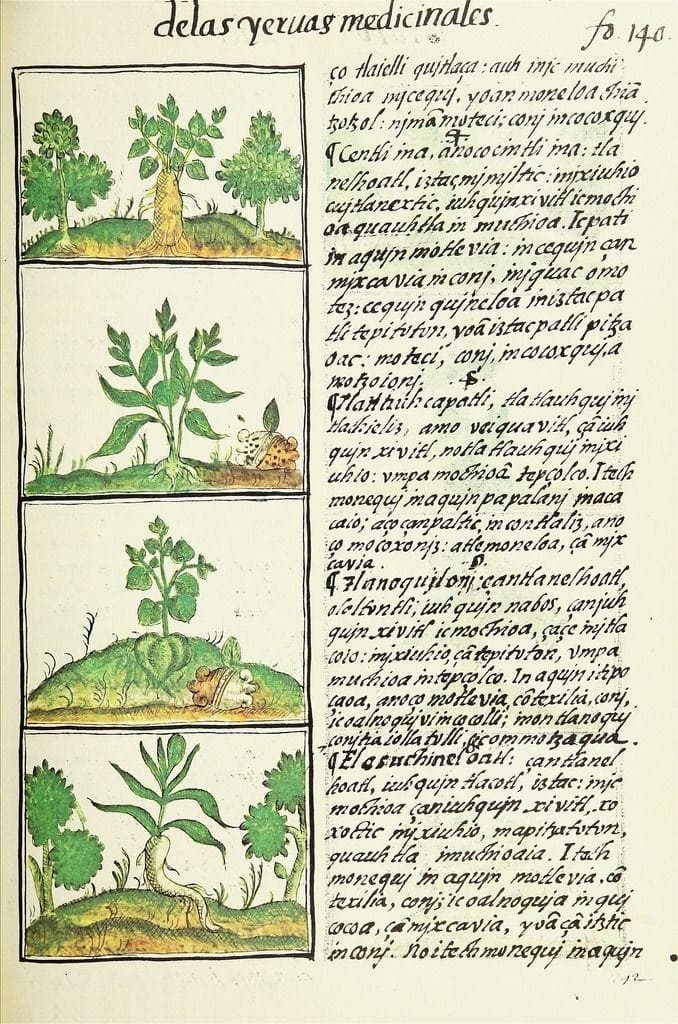 delas yeruas medicinales.
fo 140
co tlaielli quitlaça: auh injc muchi
thioa njcequj, yoan moneloa
tzotzol: njmã moteci; conj in cocoxquj.
¶ Centli ina, anoço cintli ina: tla
nelhoatl, iztac mjmjltic: injxiuhio
cujtlanextic, iuhqujnxivitl ic mochi
oa quauhtla in muchioa. Ic pati
in aqujn motlevia: in cequjn çan
mjxcavia in conj, injquac omo
tez: cequjn qujneloa in iztac pa
tli tepitoton, yoã iztac patli pitza
oac: moteci, conj, in cocoxquj, a
¶ tlatlauhcapatli, tlatlauhquj inj
tlachieliz, amo vei quavitl, çã iuh
qujn xivitl, no tlatlauhquj injxi
uhio: vmpa mochioã tepçolco. Itech
monequj in aqujn papalanj in aca
caio; aço çan paltic, in contlaliz, ano
ço mocoxonjz: atle moneloa, çã mjx
cavia.
¶ Tlanoquilonj: çan tlanelhoatl,
ololtontli, iuhqujn nabos, çan iuh
qujn xivitl ic mochioa, çaçe injtla
coio: injxiuhio, çã tepitoton, vmpa
muchioa in tepçolco. In aqujn itipo
caoa, anoço motlevia, cõtexilia, conj,
ic oalnoqujvi in cocolli; montlanoquj
¶ Elosuchineloatl: çan tlanel
hoatl, iuhqujn tlacotl, iztac: injc
mochioa çan iuhqujn xivitl, xo
xoctic injxiuhio, mapitzatoton,
quauhtla imuchioaia. Itech
monequj in aqujn motlevia. cõ
texilia, conj; ic oalnoquja in quj
cocoa, çã mjxcavia, yoã çã itztic
in conj. No itech monequj in aqujn